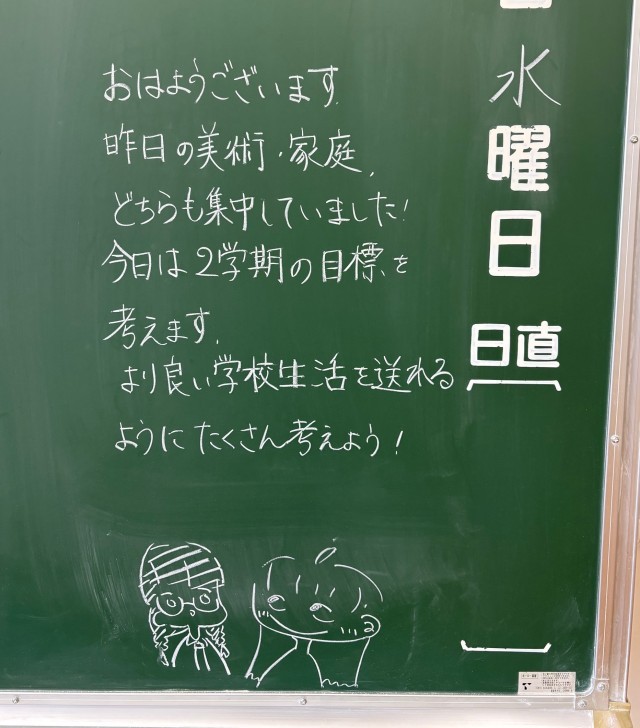 水曜日
日直
おはようございます。
昨日の美術・家庭、
どちらも集中していました!
今日は2学期の目標を
考えます。
より良い学校生活を送れる
ようにたくさん考えよう!